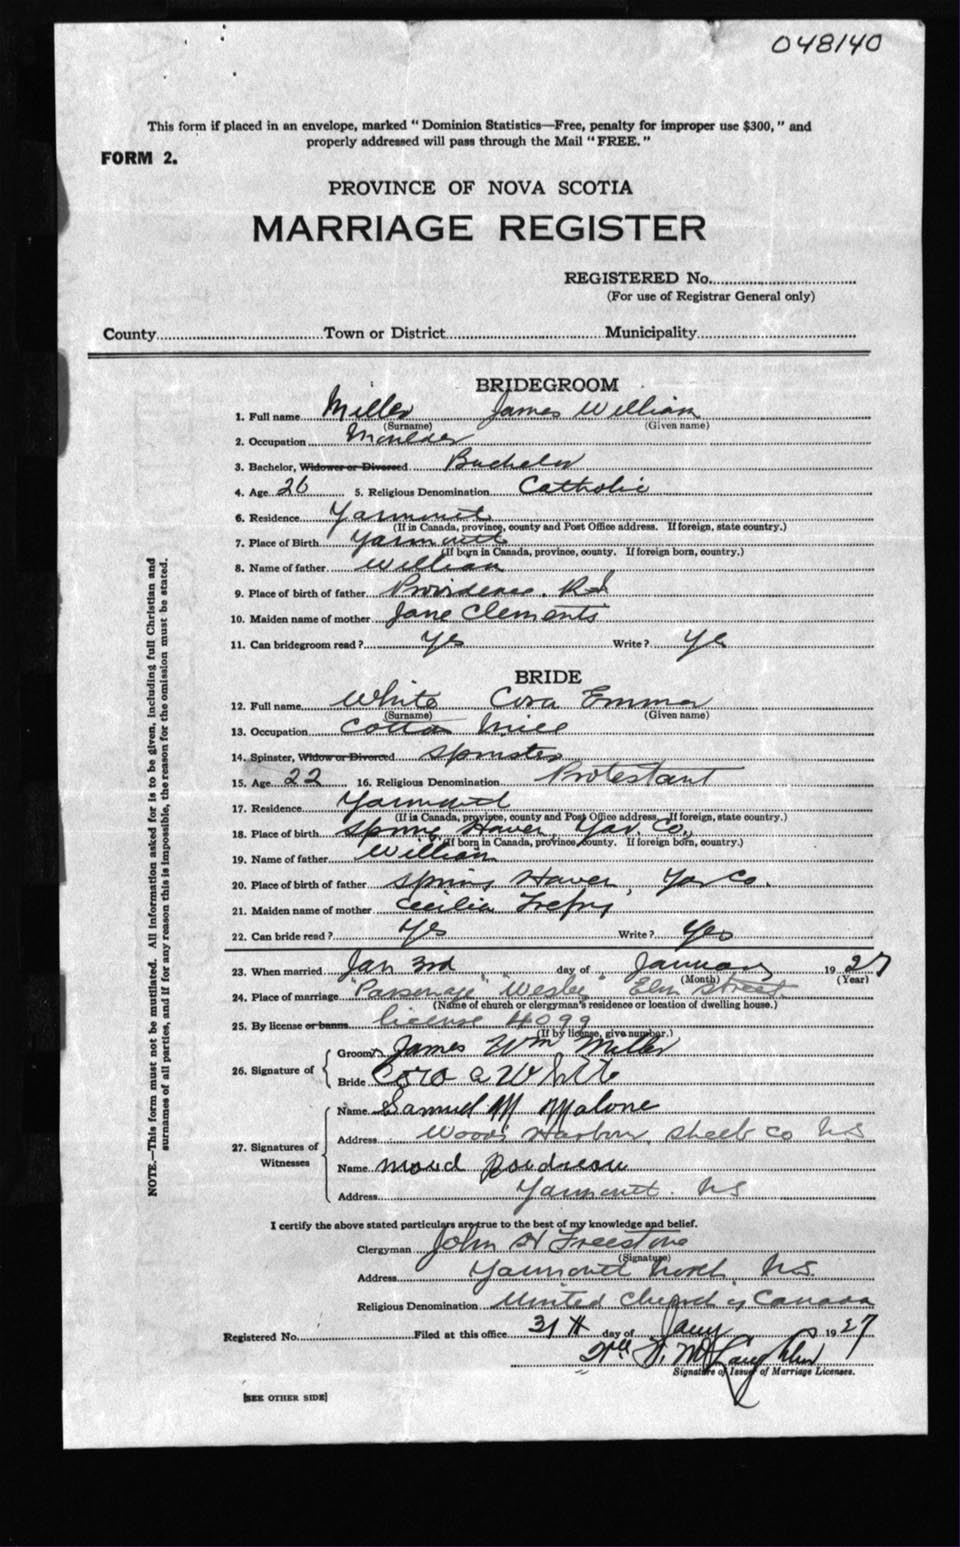 048140
This form if placed in an envelope, marked "Dominion Statistics—Free, penalty for improper use $300," and
properly addressed will pass through the Mail "FREE."
FORM 2.
PROVINCE OF NOVA SCOTIA
MARRIAGE REGISTER
REGISTERED No.
(For use of Registrar General only)
County Town or District Municipality
BRIDEGROOM
1. Full name Miller James William
(Surname) (Given name)
2. Occupation Moulder
3. Bachelor, Widower or Divorced Bachelor
4. Age 26 5. Religious Denomination Catholic
6. Residence Yarmouth
(If in Canada, province, county and Post Office address. If foreign, state country.)
7. Place of Birth Yarmouth
(If born in Canada, province, county. If foreign born, country.)
8. Name of father William
9. Place of birth of father Providence, R.I.
10. Maiden name of mother Jane Clements
11. Can bridegroom read? Yes Write? Yes
BRIDE
12. Full name White Cora Emma
(Surname) (Given name)
13. Occupation Cotton Mill
14. Spinster, Widow or Divorced Spinster
15. Age 22 16. Religious Denomination Protestant
17. Residence Yarmouth
(If in Canada, province, county and Post Office address. If foreign, state country.)
18. Place of birth Spring Haven, Yar. Co.,
(If born in Canada, province, county. If foreign born, country.)
19. Name of father William
20. Place of birth of father Spring Haven, Yar Co.
21. Maiden name of mother Cecilia Trefry
22. Can bride read? Yes Write? Yes
23. When married Jan 3rd day of January 1927
(Month) (Year)
24. Place of marriage "Parsonage" "Wesley" Elm Street
(Name of church or clergyman's residence or location of dwelling house.)
25. By license or banns license 4099
(If by license, give number.)
26. Signature of
Groom James Wm Miller
Bride Cora A White
27. Signatures of Witnesses
Name Samuel M Malone
Address Woods Harbour, Shelb Co N.S
Name Maud
Address Yarmouth. N.S
I certify the above stated particulars are true to the best of my knowledge and belief.
Clergyman John H Freestone
(Signature)
Address Yarmouth North, N.S.
Religious Denomination United Church of Canada
Registered No. Filed at this office 31st day of Jany 1927
McLaughlin
Signature of Issuer of Marriage Licenses.
[SEE OTHER SIDE]
NOTE.—This form must not be mutilated. All information asked for is to be given, including full Christian and
surnames of all parties, and if for any reason this is impossible, the reason for the omission must be stated.